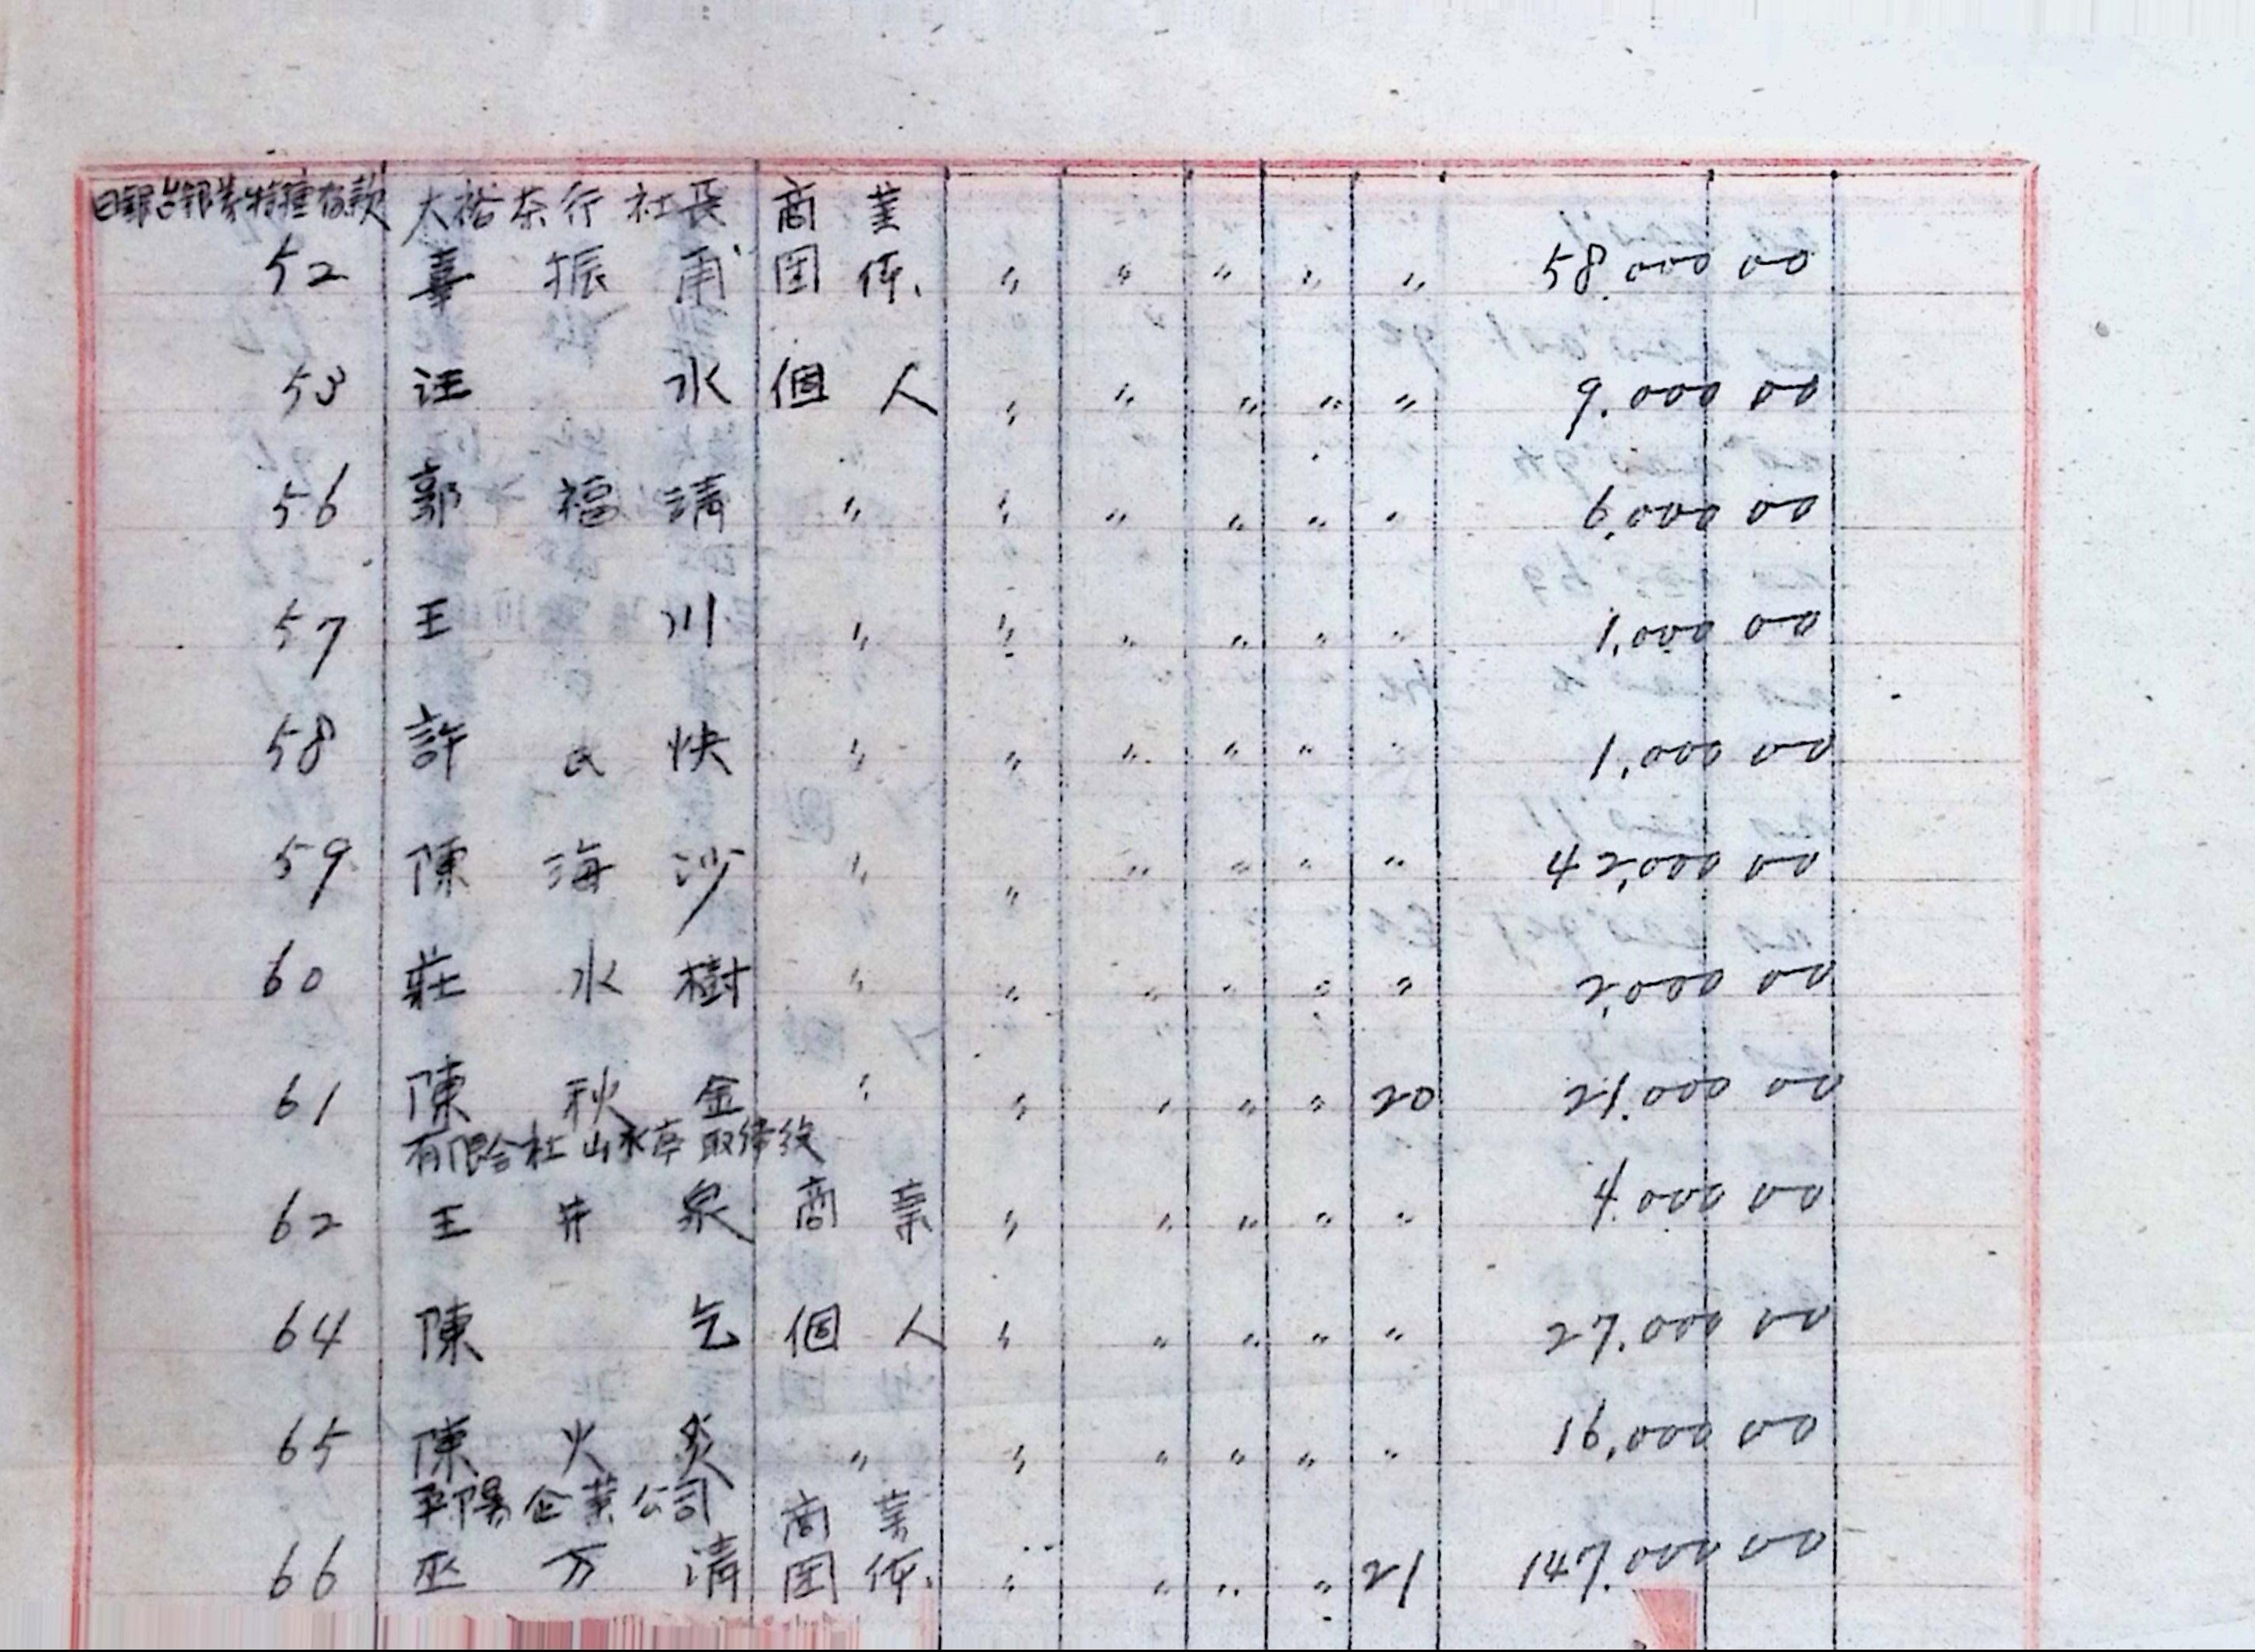 日銀台銀券特種存款 太裕茶行社長 商業
52 辜振甫 团体 〃 〃 〃 〃 〃 58,000 00
53 汪水 個人 〃 〃 〃 〃 〃 9,000 00
56 郭福清 〃 〃 〃 〃 〃 〃 6,000 00
57 王川 〃 〃 〃 〃 〃 〃 1,000 00
58 許氏快 〃 〃 〃 〃 〃 〃 1,000 00
59 陳海沙 〃 〃 〃 〃 〃 〃 42,000 00
60 莊水樹 〃 〃 〃 〃 〃 〃 2,000 00
61 陳秋金 〃 〃 〃 〃 〃 20 21,000 00
有限会社山水亭取締役
62 王井泉 商業 〃 〃 〃 〃 〃 4,000 00
64 陳乞 個人 〃 〃 〃 〃 〃 27,000 00
65 陳火炎 〃 〃 〃 〃 〃 〃 16,000 00
平陽企業公司 商業
66 巫万清 团体 〃 〃 〃 〃 21 147,000 00